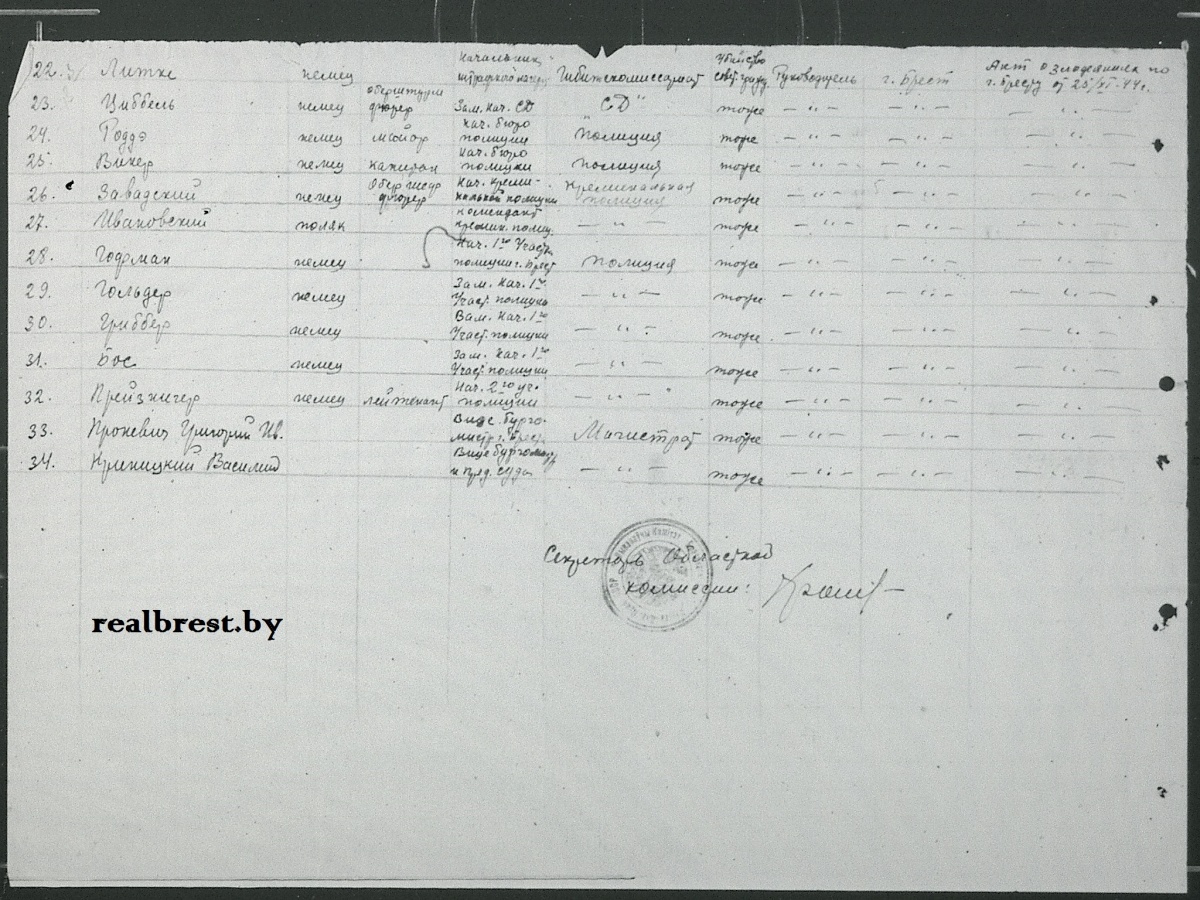 22. Литке немец Начальник штрафного лагеря Гибитскомиссариат Убийство сов. гражд. Руководитель г. Брест Акт о злодеяниях по г. Бресту от 25/XI-44 г.
23. Циббель немец оберштурм фюрер Зам. нач. СД "СД" тоже — " — — " — — " —
24. Роддэ немец майор Нач. бюро полиции Полиция тоже — " — — " — — " —
25. Винер немец капитан Нач. бюро полиции Полиция тоже — " — — " — — " —
26. Завадский немец Обер фюрер Нач. крими- нальной полиции Криминальная полиция тоже — " — — " — — " —
27. Ивановский поляк комендант кримин. полиц. — " — тоже — " — — " — — " —
28. Гофман немец Нач. 1го Участк. полиции г. Брест Полиция тоже — " — — " — — " —
29. Гольдер немец Зам. Нач. 1го Участ. полиции — " — тоже — " — — " — — " —
30. Гриббер немец Зам. Нач. 1го Участ. полиции — " — тоже — " — — " — — " —
31. Бос немец Зам. Нач. 1го Участ. полиции — " — тоже — " — — " — — " —
32. Прейзнегер немец лейтенант Нач. 2го уч. полиции — " — тоже — " — — " — — " —
33. Проневич Григорий Ив. Вице бурго- мистр г. Брест. Магистрат тоже — " — — " — — " —
34. Креницкий Василий Вице бургомистр и пред. суда — " — тоже — " — — " — — " —
Секретарь Областной
комиссии:
realbrest.by